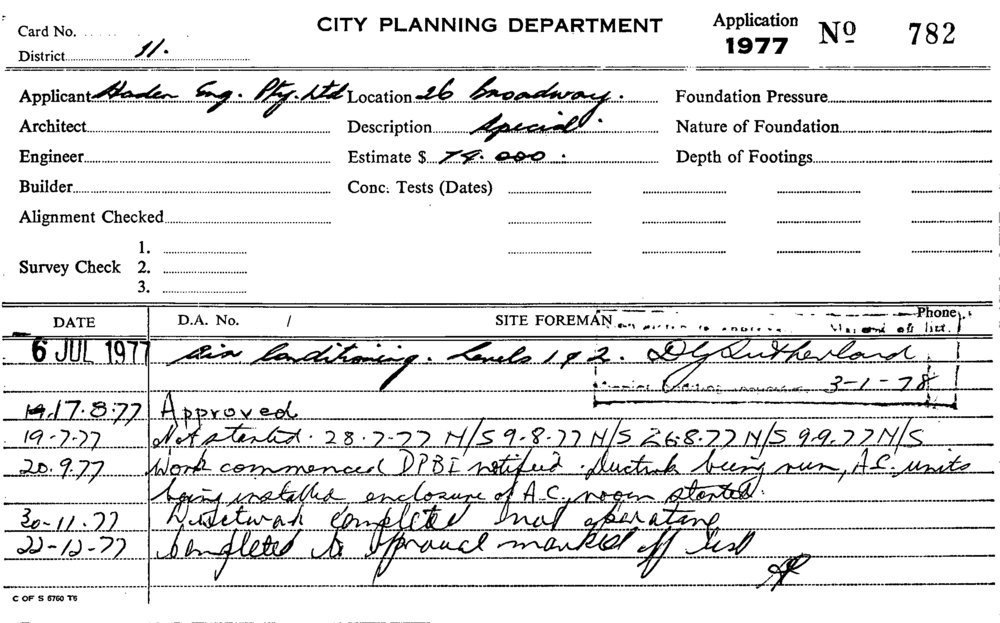 Card No.
CITY PLANNING DEPARTMENT
Application 1977 Nº 782
District 11.
Applicant Haden Eng. Pty. Ltd Location 26 Broadway. Foundation Pressure
Architect Description Special. Nature of Foundation
Engineer Estimate $ 74.000. Depth of Footings
Builder Conc. Tests (Dates)
Alignment Checked
1.
Survey Check 2.
3.
DATE D.A. No. / SITE FOREMAN Phone
6 JUL 1977 Air Conditioning. Levels 1 & 2. D G Sutherland
3-1-78
17.8.77 Approved
19-7-77 Not started. 28-7-77 N/S 9-8-77 N/S 26.8.77 N/S 9.9.77 N/S
20.9.77 Work commenced DPBI notified. Ductwk being run, A.C. units
being installed enclosure of A.C. room started.
30-11-77 Ductwork completed not operating
22-12-77 Completed to approval marked off list
C OF S 6760 T6